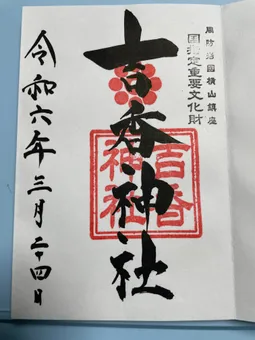 周防岩國横山鎮座
国指定重要文化財
吉香神社
吉香神社
令和六年三月二十四日